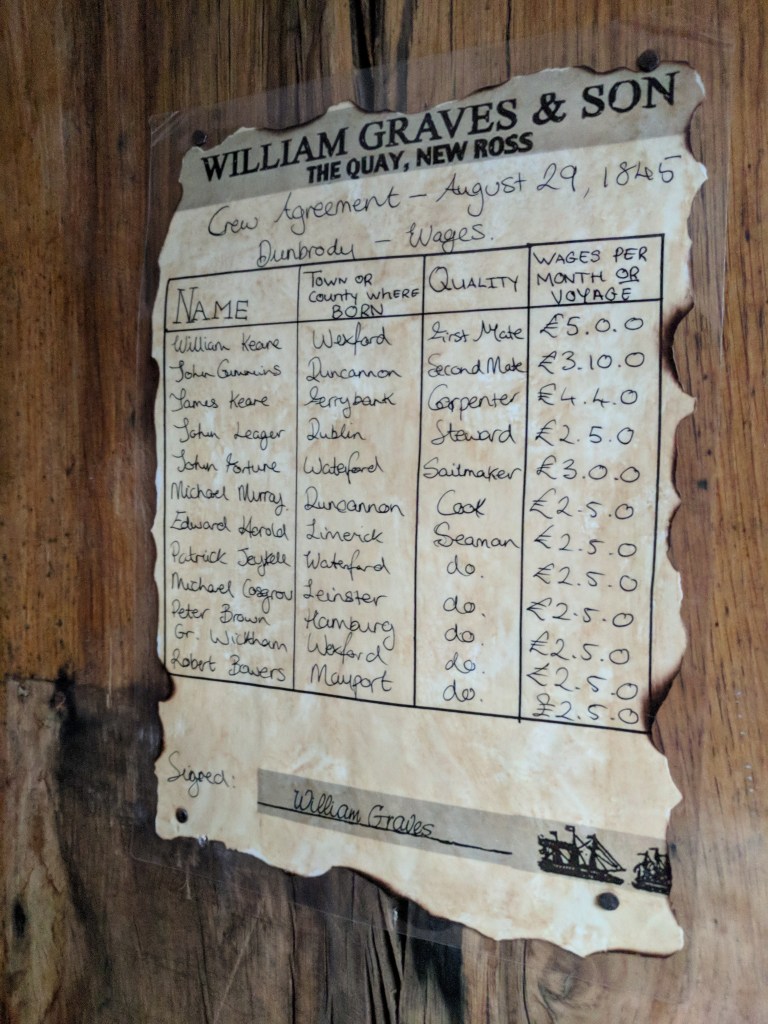 WILLIAM GRAVES & SON
THE QUAY, NEW ROSS
Crew Agreement - August 29, 1845
Dunbrody - Wages.
NAME TOWN OR COUNTY WHERE BORN QUALITY WAGES PER MONTH OR VOYAGE
William Keane Wexford First Mate £5.0.0
John Cummins Duncannon Second Mate £3.10.0
James Keane Ferrybank Carpenter £4.4.0
John Leager Dublin Steward £2.5.0
John Fortune Waterford Sailmaker £3.0.0
Michael Murray. Duncannon Cook £2.5.0
Edward Harold Limerick Seaman £2.5.0
Patrick Jeykell Waterford do. £2.5.0
Michael Cosgrou Leinster do. £2.5.0
Peter Brown Hamburg do. £2.5.0
Gr. Wickham Wexford do. £2.5.0
Robert Bowers Mayport do. £2.5.0
Signed: William Graves